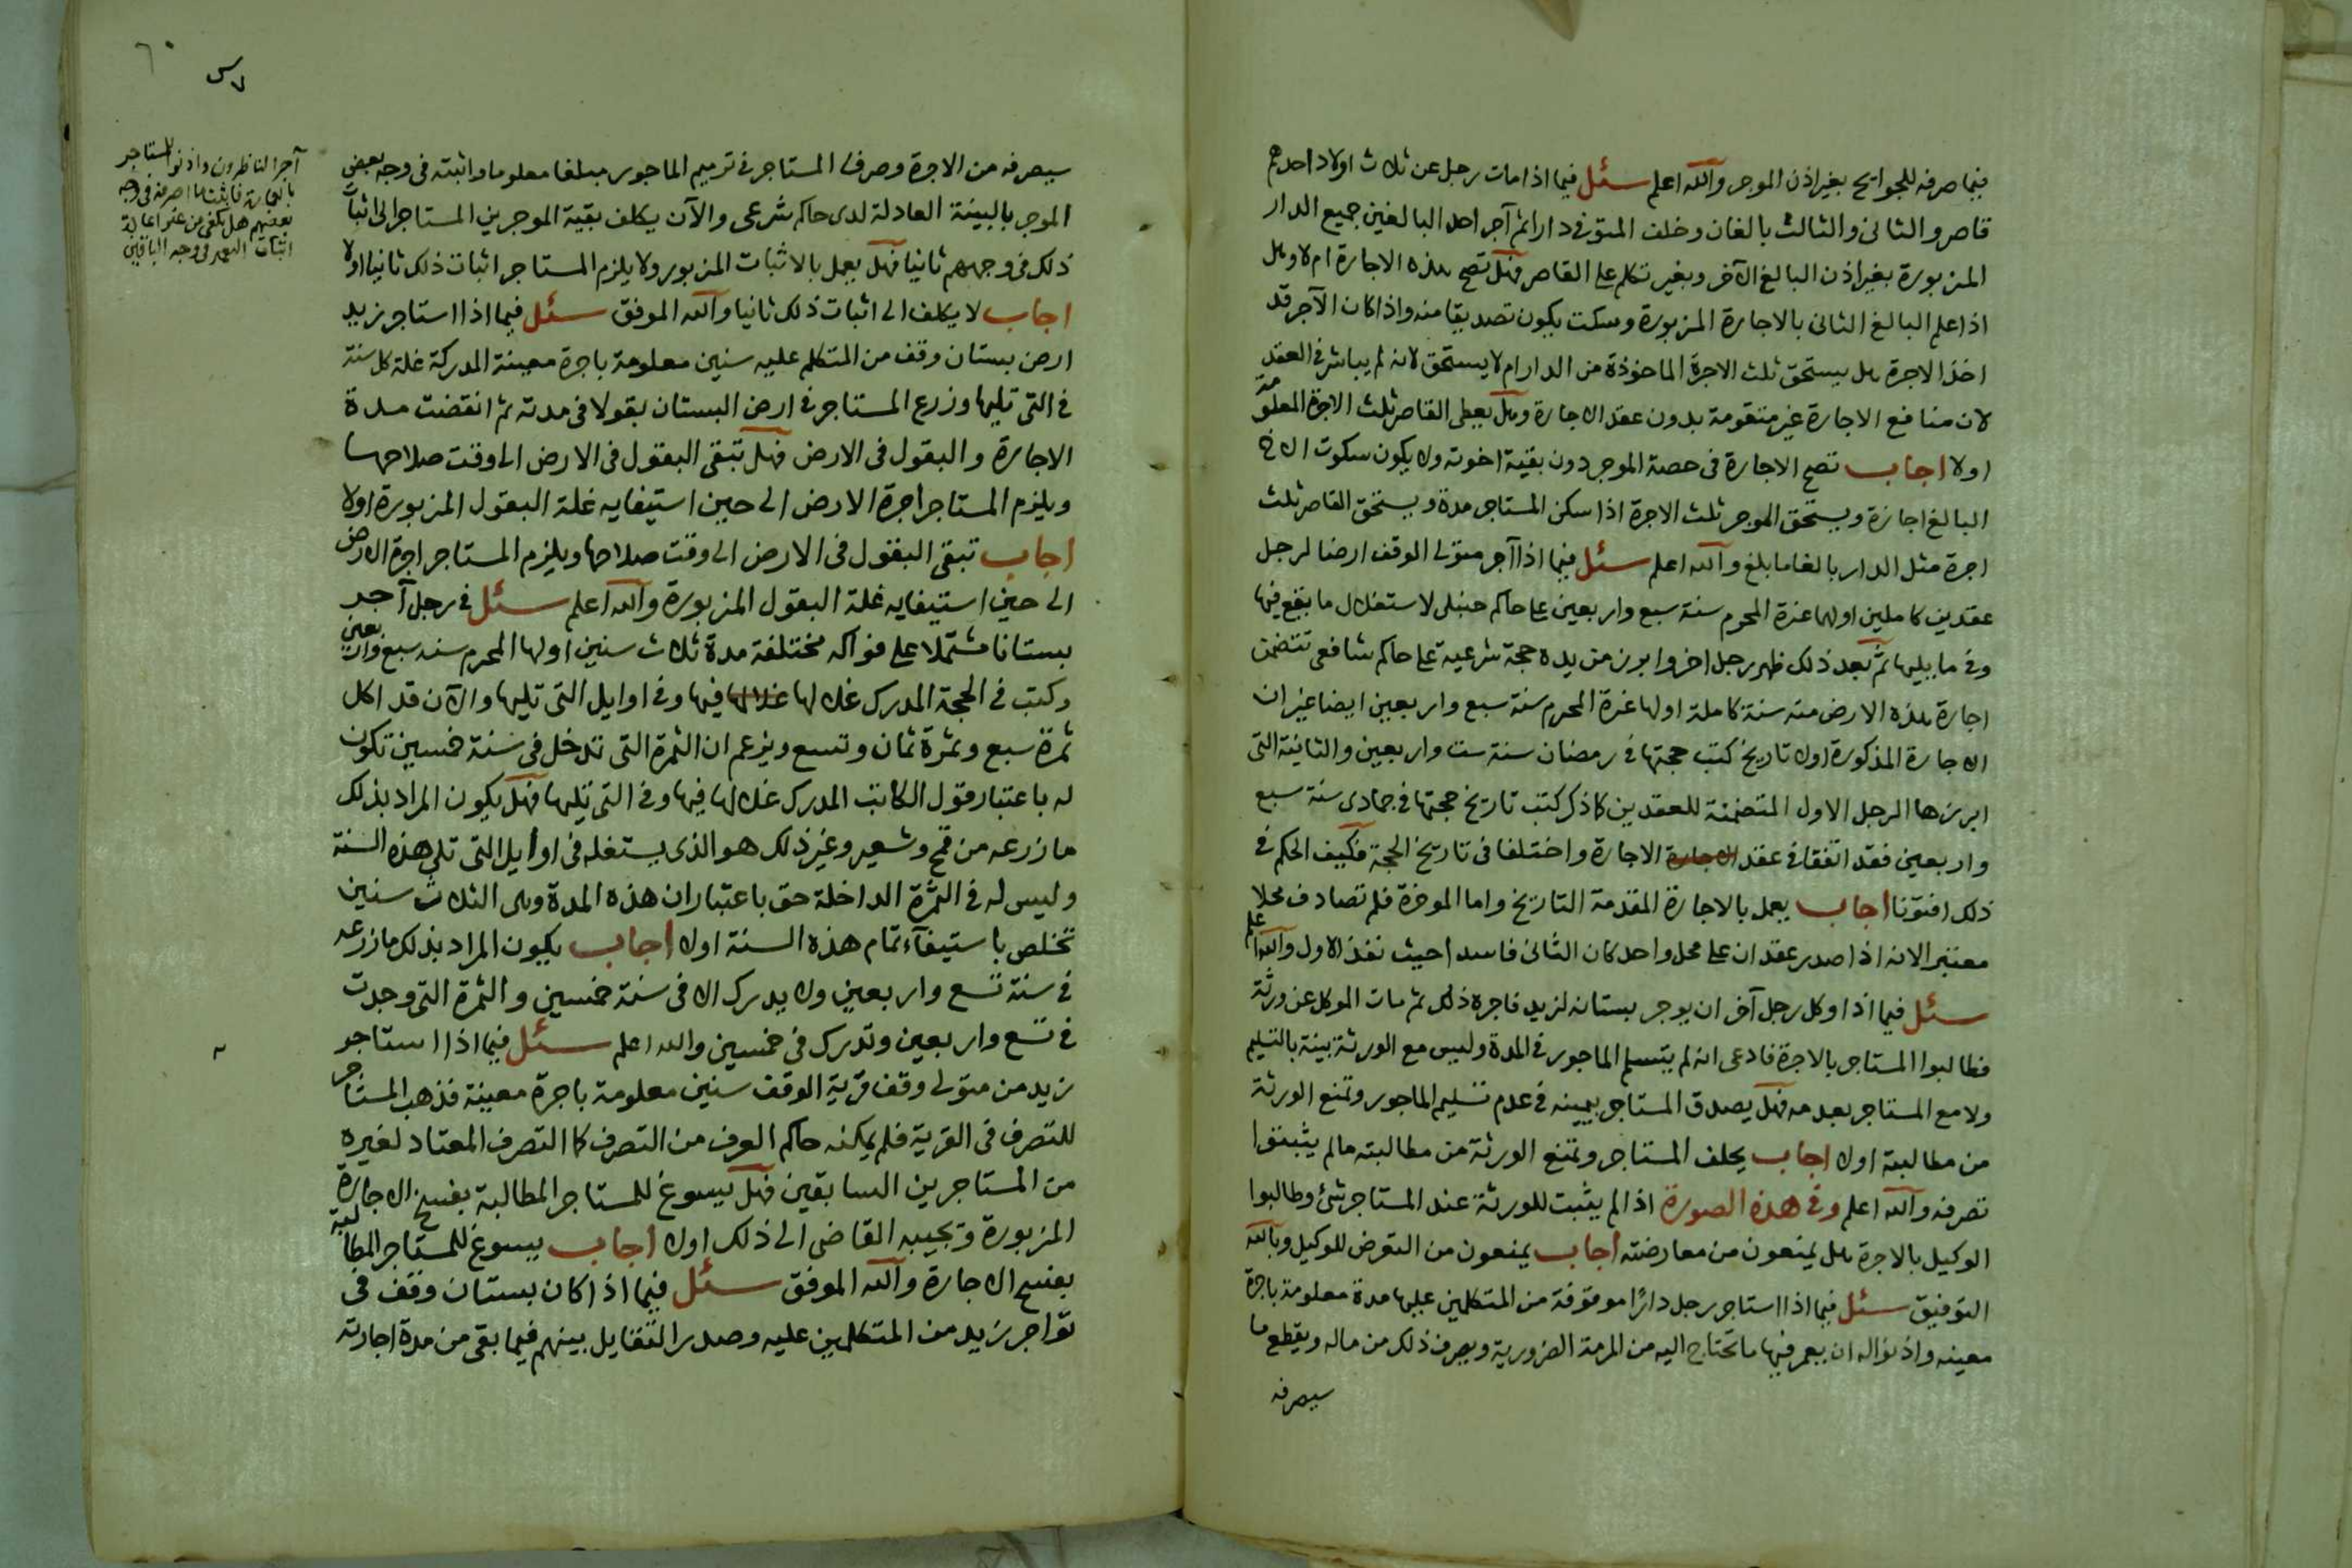 فيما صرفه للجوايح بغير اذن الموجر والله اعلم سئل فيما اذا مات رجل عن ثلاث اولاد احدهم
قاصر والثانى والثالث بالغان وخلف المتوفى دارا ثم آجر احد البالغين جميع الدار
المزبورة بغير اذن البالغ الآخر وبغير تكلم على القاصر فهل تصح هذه الاجارة ام لا وهل
اذا علم البالغ الثانى بالاجارة المزبورة وسكت يكون تصديقا منه واذا كان الآجر قد
اخذ الاجرة هل يستحق ثلث الاجرة الماخوذة من الدار ام لا يستحق لانه لم يباشر فى العقد
لان منافع الاجارة غير متقومة بدون عقد الاجارة وهل يعطى القاصر ثلث الاجرة المعلومة
اولا اجاب تصح الاجارة فى حصة الموجر دون بقية اخوته ولا يكون سكوت الاخ
البالغ اجازة ويستحق الموجر ثلث الاجرة اذا سكن المستاجر مدة ويستحق القاصر ثلث
اجرة مثل الدار بالغا ما بلغ والله اعلم سئل فيما اذا آجر متولى الوقف ارضا لرجل
عقدين كاملين اولهما غرة المحرم سنة سبع واربعين على حاكم حنبلى لاستغلال ما يقع فيها
وفى ما يليها ثم بعد ذلك ظهر رجل اخر وابرز من يده حجة شرعية على حاكم شافعى تتضمن
اجارة هذه الارض منه سنة كاملة اولها غرة المحرم سنة سبع واربعين ايضا غير ان
الاجارة المذكورة اولا تاريخ كتب حجتها فى رمضان سنة ست واربعين والثانية التى
ابرزها الرجل الاول المتضمنة للعقدين كما ذكر كتب تاريخ حجتها فى جمادى سنة سبع
واربعين فقد اتفقا فى عقد الاجارة الاجارة واختلفا فى تاريخ الحجة فكيف الحكم فى
ذلك افتونا اجاب يعمل بالاجارة المقدمة التاريخ واما الموخرة فلم تصادف محلا
معتبرا لانه اذا صدر عقدان على محل واحد كان الثانى فاسدا حيث نفذ الاول والله اعلم
سئل فيما اذا وكل رجل آخر ان يوجر بستانه لزيد فاجره ذلك ثم مات الموكل عن ورثة
فطالبوا المستاجر بالاجرة فادعى انه لم يتسلم الماجور فى المدة وليس مع الورثة بينة بالتسليم
ولا مع المستاجر بعدمه فهل يصدق المستاجر بيمينه فى عدم تسليم الماجور وتمنع الورثة
من مطالبته اولا اجاب يحلف المستاجر وتمنع الورثة من مطالبته مالم يثبتوا
تصرفه والله اعلم وفى هذه الصورة اذا لم يثبت للورثة عند المستاجر شئ وطالبوا
الوكيل بالاجرة هل يمنعون من معارضته اجاب يمنعون من التعرض للوكيل وبالله
التوفيق سئل فيما اذا استاجر رجل دارًا موقوفة من المتكلمين عليها مدة معلومة باجرة
معينه واذنوا له ان يعمر فيها ما تحتاج اليه من المرمة الضرورية ويصرف ذلك من ماله ويقطع ما
سيصرفه
٦٠
آجر الناظرون واذنوا للمستاجر
بالعمارة فاثبت ما صرفه فى وجه
بعضهم هل يكفى من غير اعادة
اثبات التعمير فى وجه الباقين
سيصرفه من الاجرة وصرف المستاجر فى ترميم الماجور مبلغا معلوما واثبته فى وجه بعض
الموجر بالبينة العادلة لدى حاكم شرعى والآن يكلف بقية الموجرين المستاجر الى اثبات
ذلك فى وجههم ثانيا فهل يعمل بالاثبات المزبور ولا يلزم المستاجر اثبات ذلك ثانيا اولا
اجاب لا يكلف الى اثبات ذلك ثانيا والله الموفق سئل فيما اذا استاجر زيد
ارض بستان وقف من المتكلم عليه سنين معلومة باجرة معينة المدركة غلة كل سنة
فى التى تليها وزرع المستاجر فى ارض البستان بقولا فى مدته ثم انقضت مدة
الاجارة والبقول فى الارض فهل تبقى البقول فى الارض الى وقت صلاحها
ويلزم المستاجر اجرة الارض الى حين استيفايه غلة البقول المزبورة اولا
اجاب تبقى البقول فى الارض الى وقت صلاحها ويلزم المستاجر اجرة الارض
الى حين استيفايه غلة البقول المزبورة والله اعلم سئل فى رجل آجر
بستانا مشتملا على فواكه مختلفة مدة ثلاث سنين اولها المحرم سنه سبع واربعين
وكتب فى الحجة المدرك غلالها غلالها فيها وفى اوايل التى تليها والآن قد اكل
ثمرة سبع وثمرة ثمان وتسع ويزعم ان الثمرة التى تدخل فى سنة خمسين تكون
له باعتبار قول الكاتب المدرك غلالها فيها وفى التى تليها فهل يكون المراد بذلك
ما زرعه من قمح وشعير وغير ذلك هو الذى يستغله فى اوايل التى تلى هذه السنة
وليس له فى الثمرة الداخلة حق باعتبار ان هذه المدة وهى الثلاث سنين
تخلص باستيفآء تمام هذه السنة اولا اجاب يكون المراد بذلك ما زرعه
فى سنة تسع واربعين ولا يدرك الا فى سنة خمسين والثمرة التى وجدت
فى تسع واربعين وتدرك فى خمسين والله اعلم سئل فيما اذا استاجر
زيد من متولى وقف قرية الوقف سنين معلومة باجرة معينة فذهب المستاجر
للتصرف فى القرية فلم يمكنه حاكم العرف من التصرف كما التصرف المعتاد لغيره
من المستاجرين السابقين فهل يسوغ للمستاجر المطالبة بفسخ الاجارة
المزبورة وتجيبه القاضى الى ذلك اولا اجاب يسوغ للمستاجر المطالبة
بفسخ الاجارة والله الموفق سئل فيما اذا كان بستان وقف فى
تواجر زيد من المتكلمين عليه وصدر التقايل بينهم فيما بقى من مدة اجارته